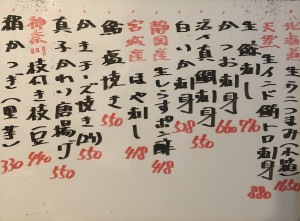 北海道産 生うにつまみ(小箱) 1650
天然 生インド鮪トロ刺身 880
生鯨刺し 770
かつお刺身 660
活〆真鯛刺身 550
白いか刺身 528
静岡産 生しらすポン酢 418
宮城産 ほや刺し 418
鮎塩焼き 550
かきチーズ焼き(2ケ) 550
真子かれい唐揚げ 550
神奈川 枝付き枝豆 440
絹かつぎ(里芋) 330